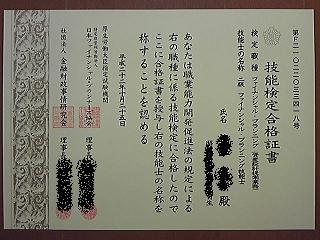 第F二一〇二二〇三三四一八号
技能検定合格証書
検定職種 ファイナンシャル・プランニング
技能士の名称 二級ファイナンシャル・プランニング技能士
氏名
殿
あなたは職業能力開発促進法の規定による
右の職種に係る技能検定に合格したので
ここに合格証書を授与し右の技能士の名称を
称することを認める
平成二十二年十月二十五日
厚生労働大臣指定試験機関
日本ファイナンシャル・プランナーズ協会
理事長
社団法人 金融財政事情研究会
理事長